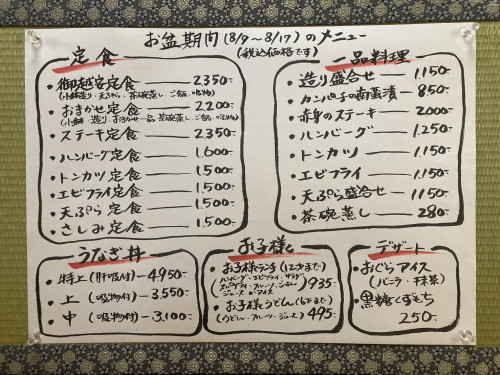 お盆期間(8/9～8/17)のメニュー
(税込価格です)
定食
・御越安定食 2350-
(小鉢、造り、天ぷら、茶碗蒸し、ご飯、吸物)
・おまかせ定食 2,200-
(小鉢、造り、おまかせ一品、茶碗蒸し、ご飯、吸物)
・ステーキ定食 2350-
・ハンバーグ定食 1,600-
・トンカツ定食 1,500-
・エビフライ定食 1,500-
・天ぷら定食 1,500-
・さしみ定食 1,500-
一品料理
・造り盛合せ 1,150-
・カンパチの南蛮漬 850-
・赤身のステーキ 2000-
・ハンバーグ 1,250-
・トンカツ 1,150-
・エビフライ 1,150-
・天ぷら盛合せ 1,150-
・茶碗蒸し 280-
うなぎ丼
・特上(肝吸付) 4,950-
・上(吸物付) 3,550-
・中(吸物付) 3,100-
お子様
・お子様ランチ(12才まで) 935-
ハンバーグ・エビフライ・サラダ
フルーツ
ジュース
・お子様うどん(6才まで) 495-
(うどん、フルーツ、ジュース)
デザート
・おぐらアイス
(バニラ・抹茶)
・黒糖くずもち
250-